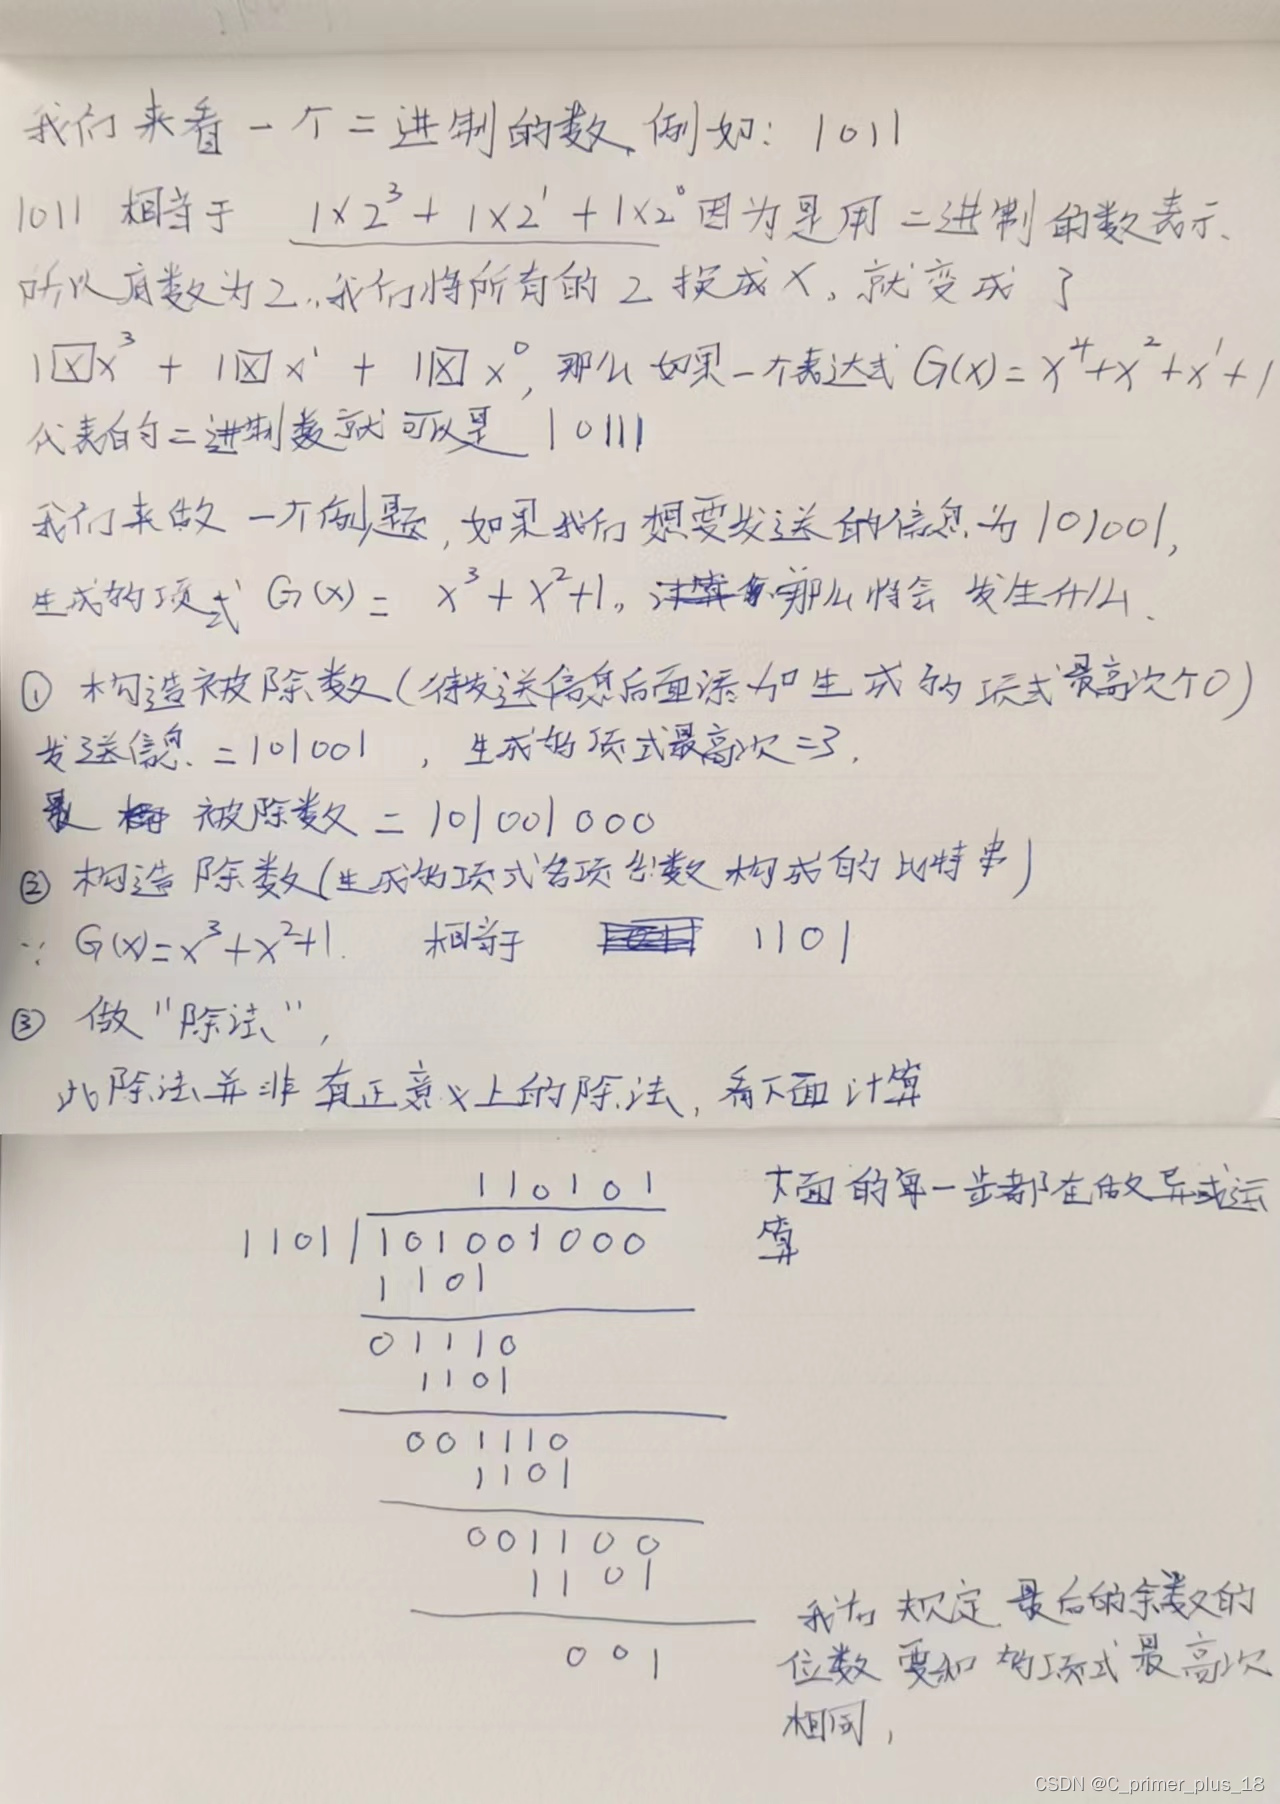 我们来看一个二进制的数,例如: 1011
1011 相当于 1×2³ + 1×2¹ + 1×2⁰ 因为是用二进制的数表示、
所以底数为2,我们将所有的2换成X,就变成了
1☒x³ + 1☒x¹ + 1☒x⁰, 那么如果一个表达式 G(x)=x⁴+x²+x¹+1
代表的二进制数就可以是 10111
我们来做一个例题,如果我们想要发送的信息为101001,
生成多项式 G(x)= x³+x²+1, 那么将会发生什么.
① 构造被除数(待发送信息后面添加生成多项式最高次个0)
发送信息=101001 , 生成多项式最高次=3.
被除数=101001000
② 构造除数(生成多项式各项系数构成的比特串)
∵ G(x)=x³+x²+1. 相当于 1101
③ 做"除法",
此除法并非真正意义上的除法,看下面计算
110101
1101 101001000
下面的每一步都在做异或运
算
1101
01110
1101
001110
1101
001100
1101
001
我们规定最后的余数的
位数要和多项式最高次
相同,
CSDN @C_primer_plus_18